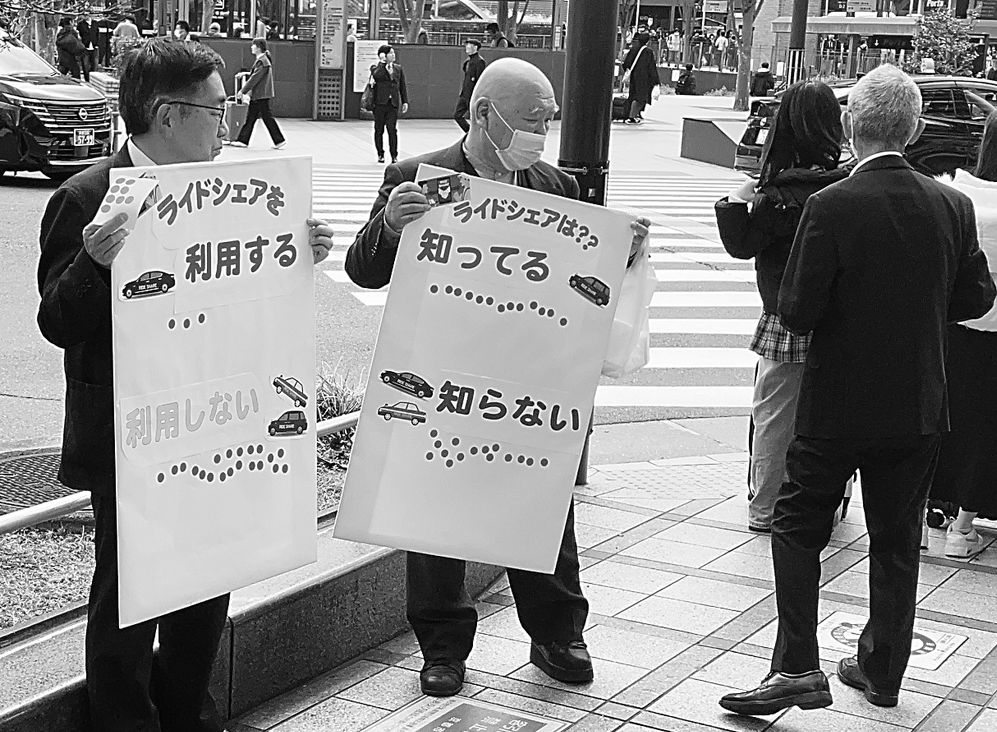 ライドシェアを
利用する
利用しない
ライドシェアは??
知ってる
知らない